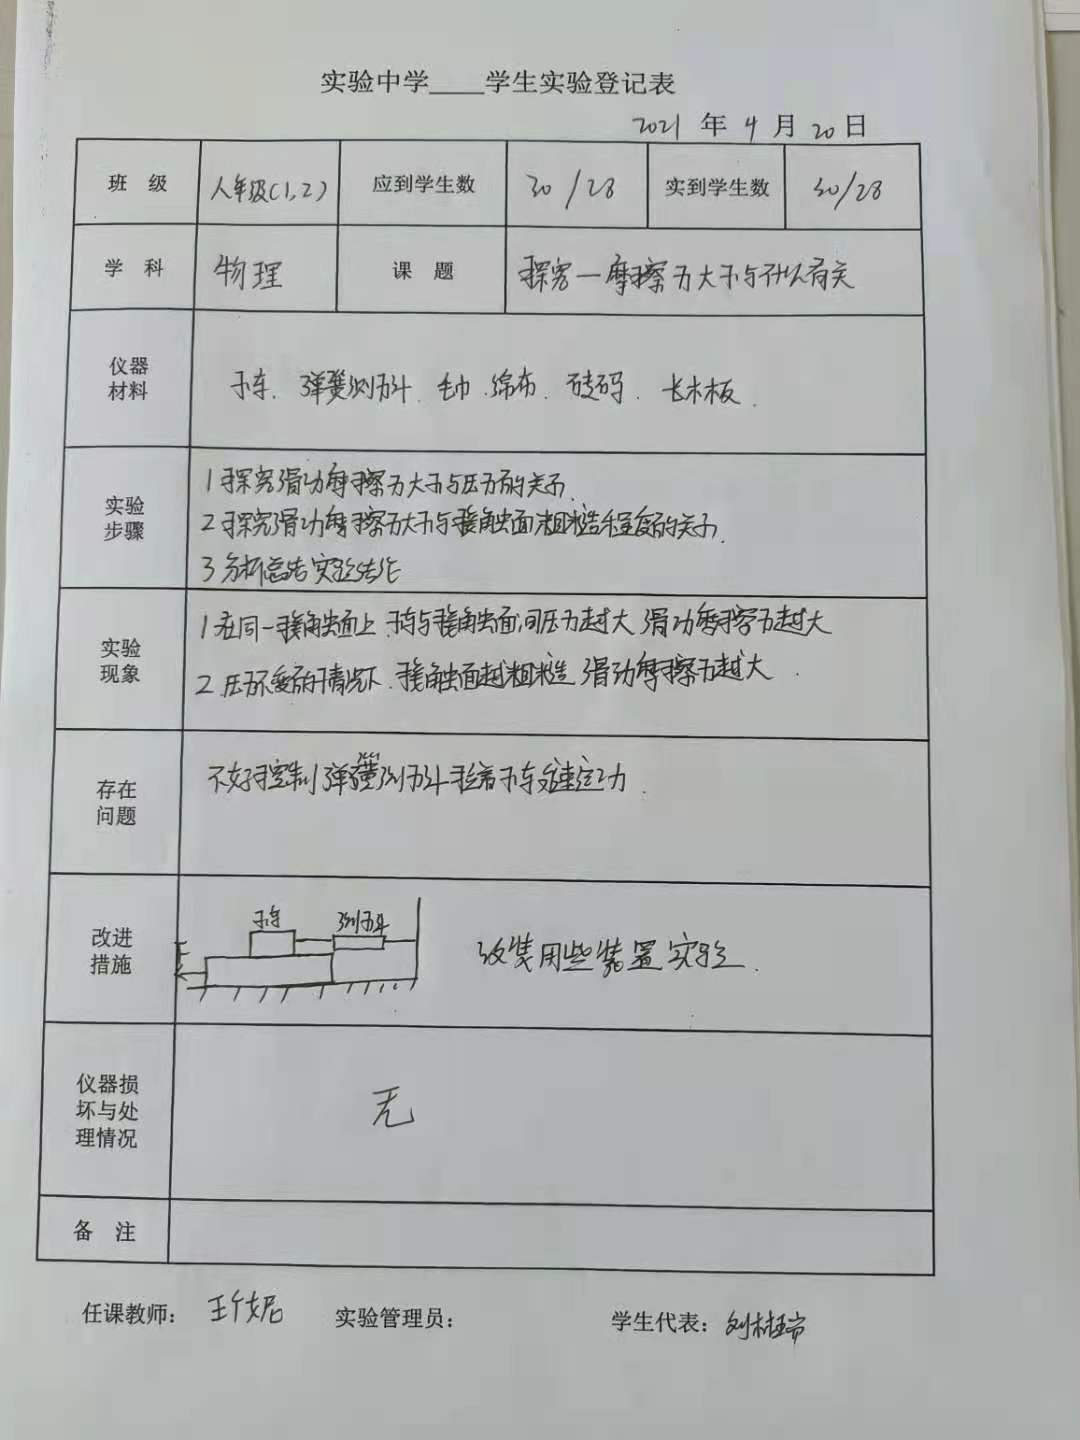 实验中学____学生实验登记表
2021 年 4 月 20 日
班 级 八年级(1,2) 应到学生数 30/28 实到学生数 30/28
学 科 物理 课 题 探究—摩擦力大小与什么有关
仪器材料 小车、弹簧测力计、毛巾、绵布、砝码、长木板.
实验步骤
1 探究滑动摩擦力大小与压力的关系.
2 探究滑动摩擦力大小与接触面粗糙程度的关系.
3 分析总结实验结论
实验现象
1 在同一接触面上、小车与接触面间压力越大 滑动摩擦力越大
2 压力不变的情况下、接触面越粗糙 滑动摩擦力越大.
存在问题 不好控制弹簧测力计拉着小车匀速运动.
改进措施
小车 测力计
F
改装用些装置实验.
仪器损坏与处理情况 无
备 注
任课教师: 实验管理员: 学生代表: